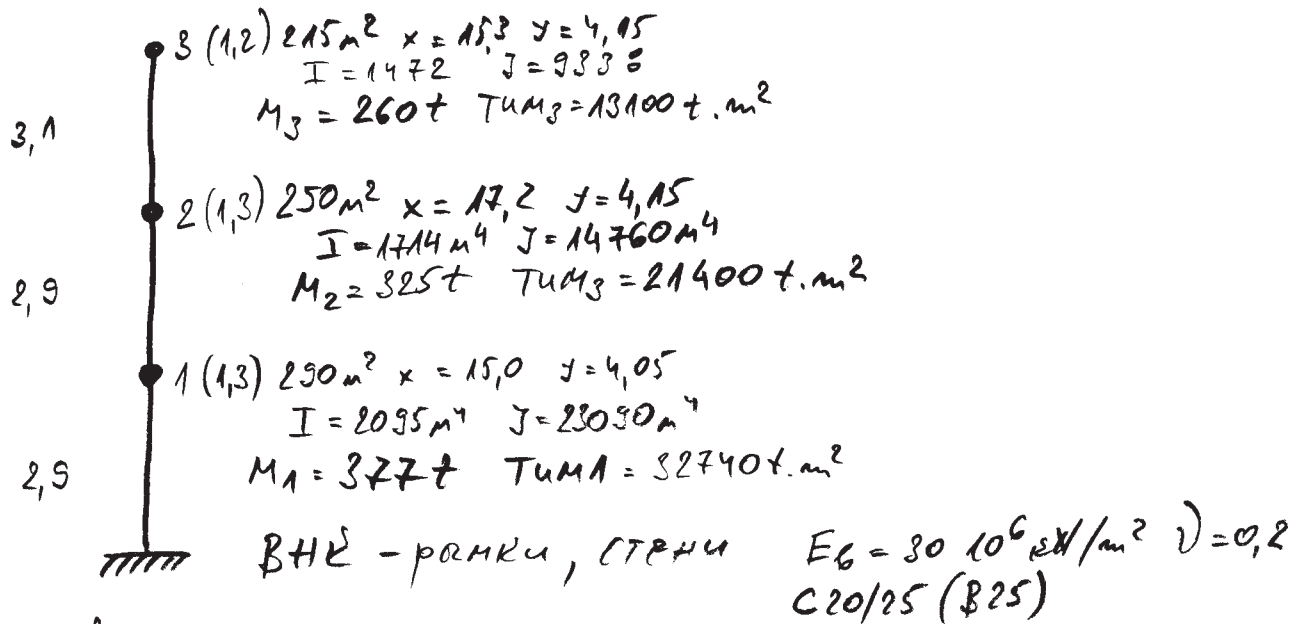 3 (1,2) 215m² x = 15,3 y = 4,15
I = 1472 J = 9338
M₃ = 260t ТИМ₃ = 13100 t.m²
3,1
2 (1,3) 250m² x = 17,2 y = 4,15
I = 1714 м⁴ J = 14760 м⁴
M₂ = 325t ТИМ₃ = 21400 t.m²
2,9
1 (1,3) 290 m² x = 15,0 y = 4,05
I = 2095 м⁴ J = 23090 м⁴
M₁ = 377t ТИМ1 = 32740 t.m²
2,9
ВНК - рамки, стени Eб = 30 10⁶ kN/m² ν = 0,2
C20/25 (B25)